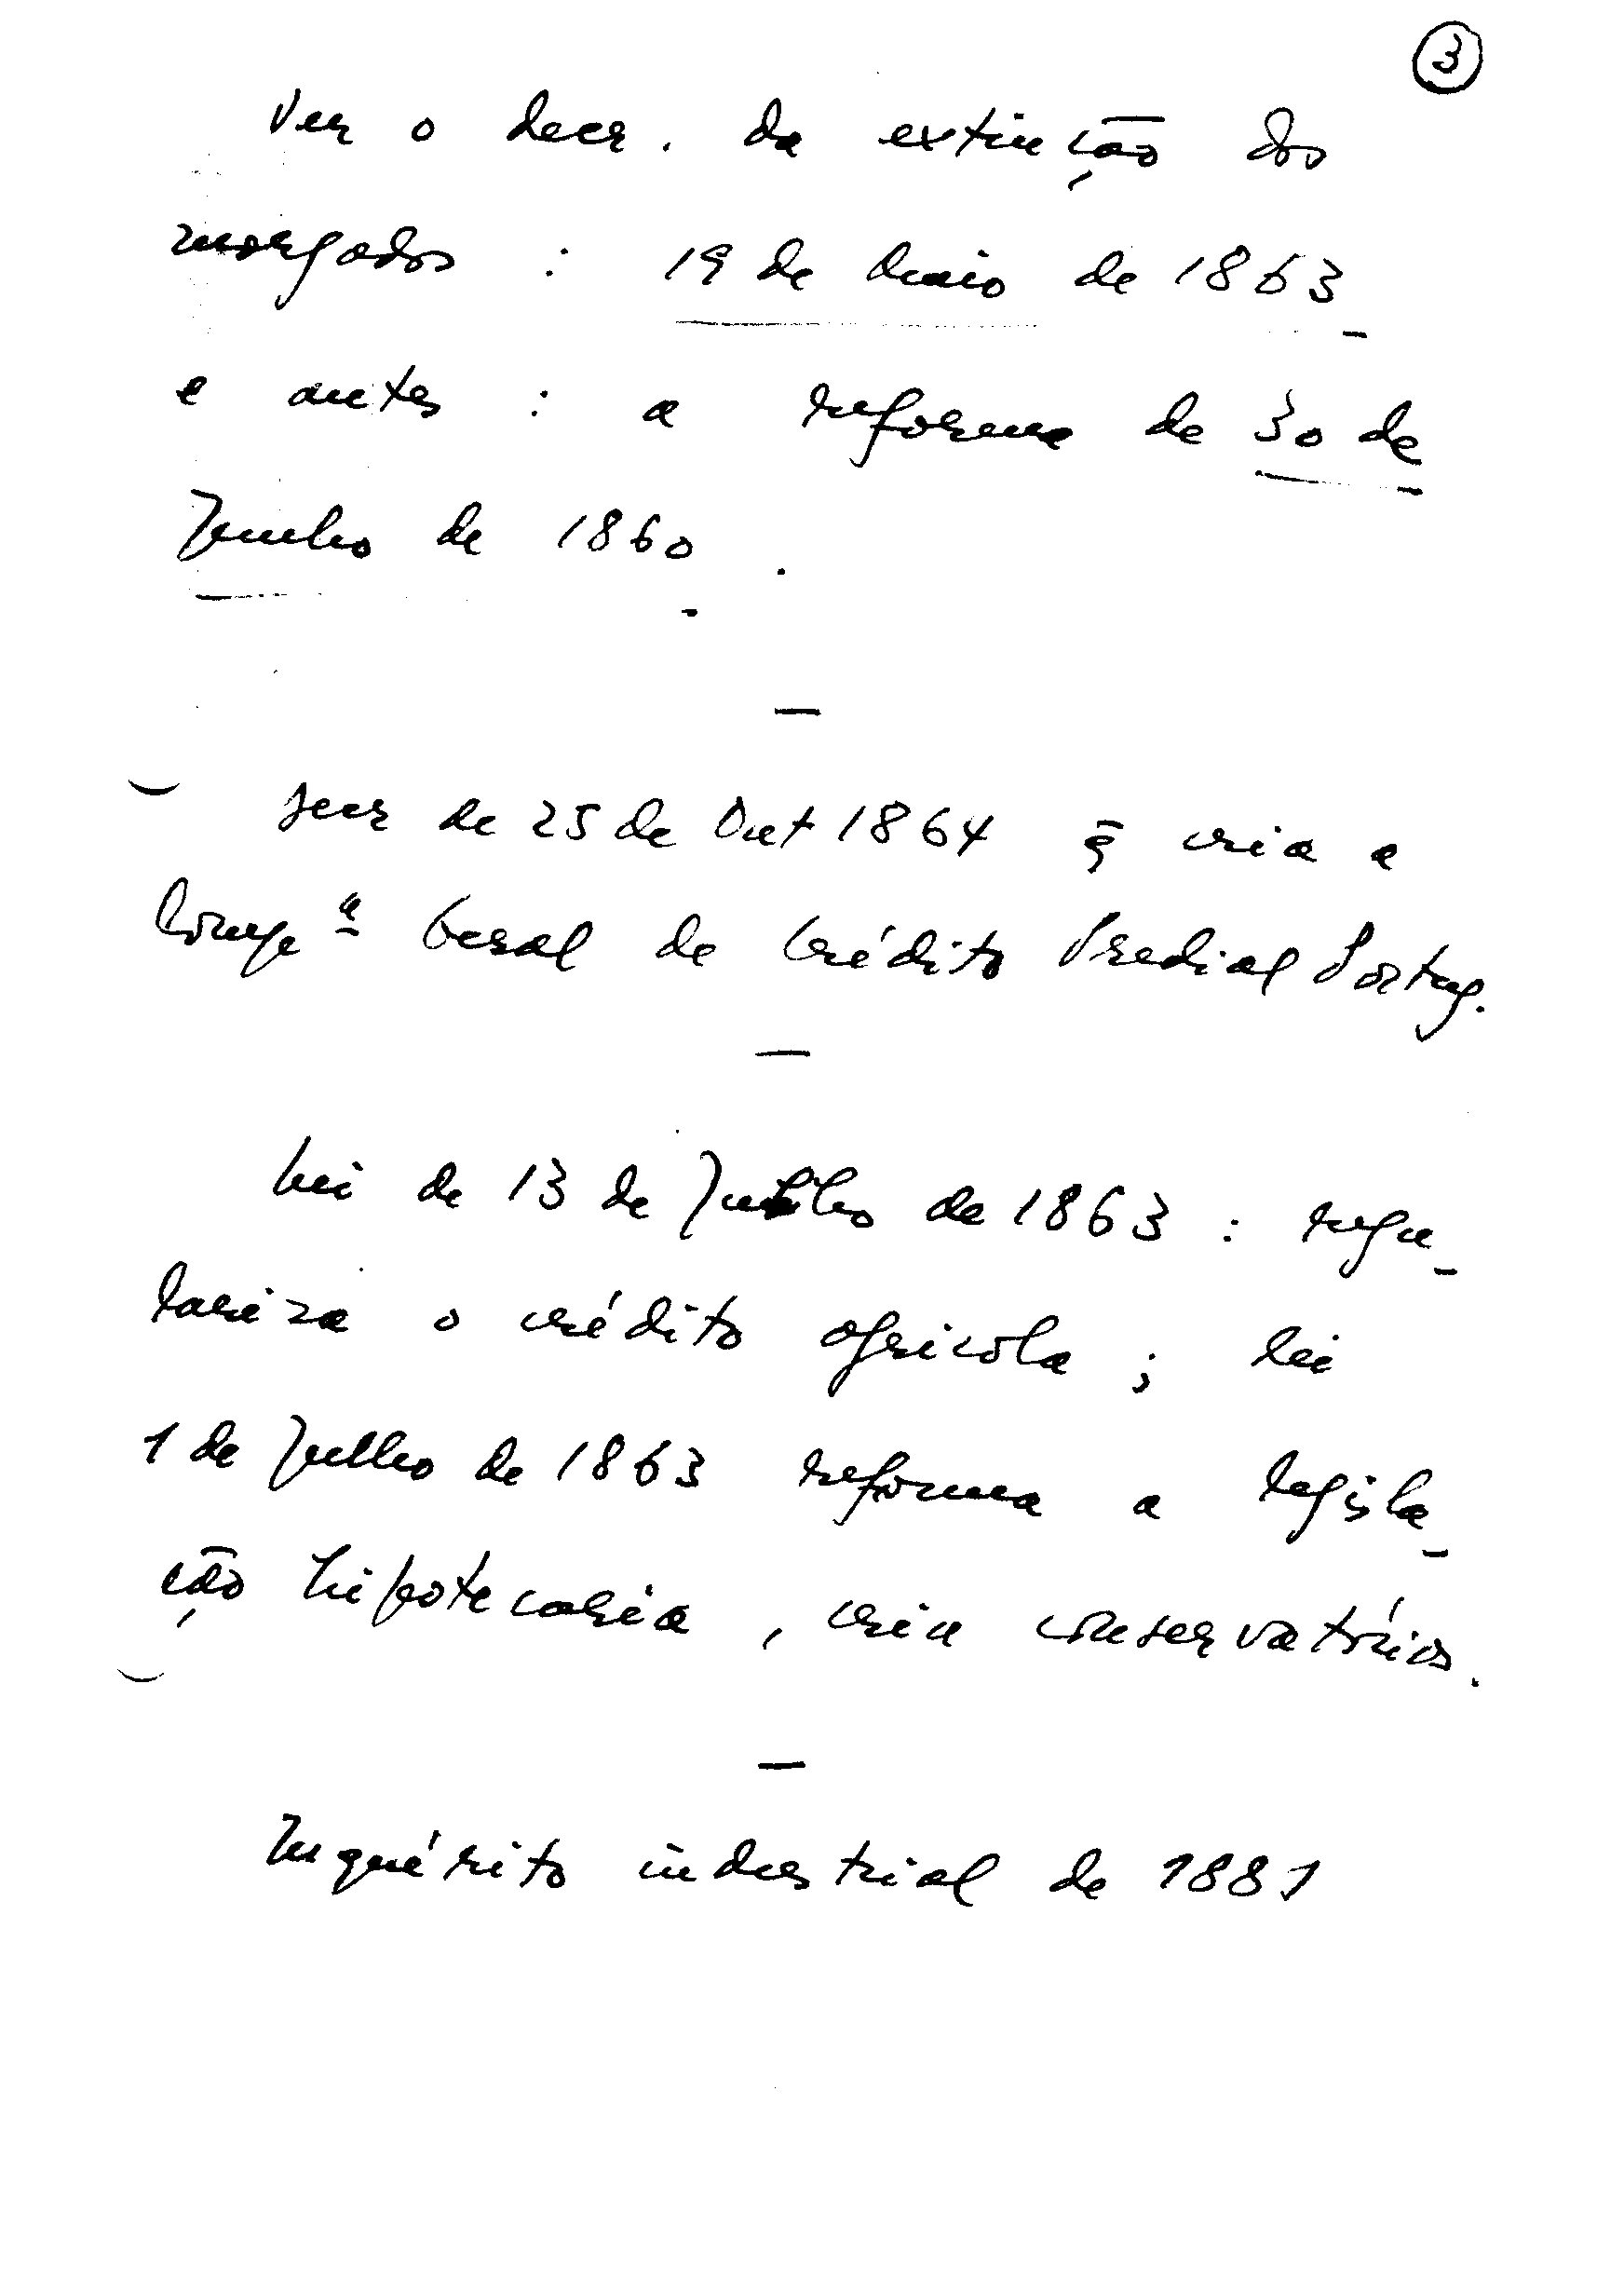 3
Ver o decr. da extinção dos
morgados : 19 de Maio de 1863
e antes : a reforma de 30 de
Junho de 1860.
—
Decr de 25 de Out 1864 q̃ cria a
Comp.ª Geral de Crédito Predial Portug.
—
Lei de 13 de Julho de 1863 : regu-
lariza o crédito agricola ; lei
1 de Julho de 1863 reforma a legisla-
ção hipotecaria, cria conservatórios.
—
Inquérito industrial de 1881